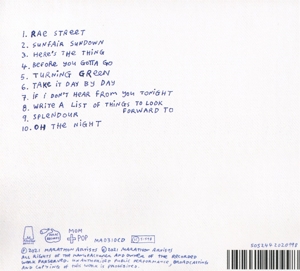 1. RAE STREET
2. SUNFAIR SUNDOWN
3. HERE'S THE THING
4. BEFORE YOU GOTTA GO
5. TURNING GREEN
6. TAKE IT DAY BY DAY
7. IF I DON'T HEAR FROM YOU TONIGHT
8. WRITE A LIST OF THINGS TO LOOK
FORWARD TO
9. SPLENDOUR
10. OH THE NIGHT
MOM
+POP
MA0310CD
℗2021 MARATHON ARTISTS ©2021 MARATHON ARTISTS
ALL RIGHTS OF THE MANUFACTURER AND OWNER OF THE RECORDED
WORK RESERVED. UNAUTHORISED PUBLIC PERFORMANCE, BROADCASTING
AND COPYING OF THIS WORK IS PROHIBITED.